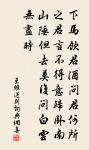 下馬飲君酒問君何所
之君言不得意歸臥南
山陲但去莫復問白雲
無盡時
王維送別詞典網